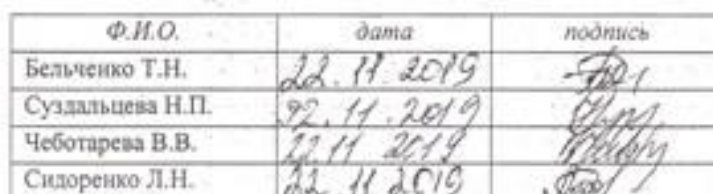 Ф.И.О. дата подпись
Бельченко Т.Н. 22.11.2019
Суздальцева Н.П. 22.11.2019
Чеботарева В.В. 22.11 2019
Сидоренко Л.Н. 22.11 2019